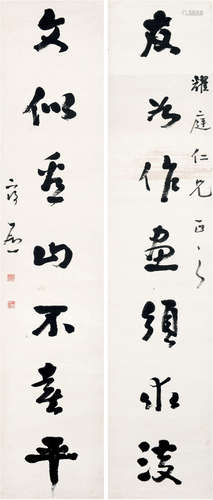 耀庭仁兄正之
友如作畫須求淡
文似看山不喜平